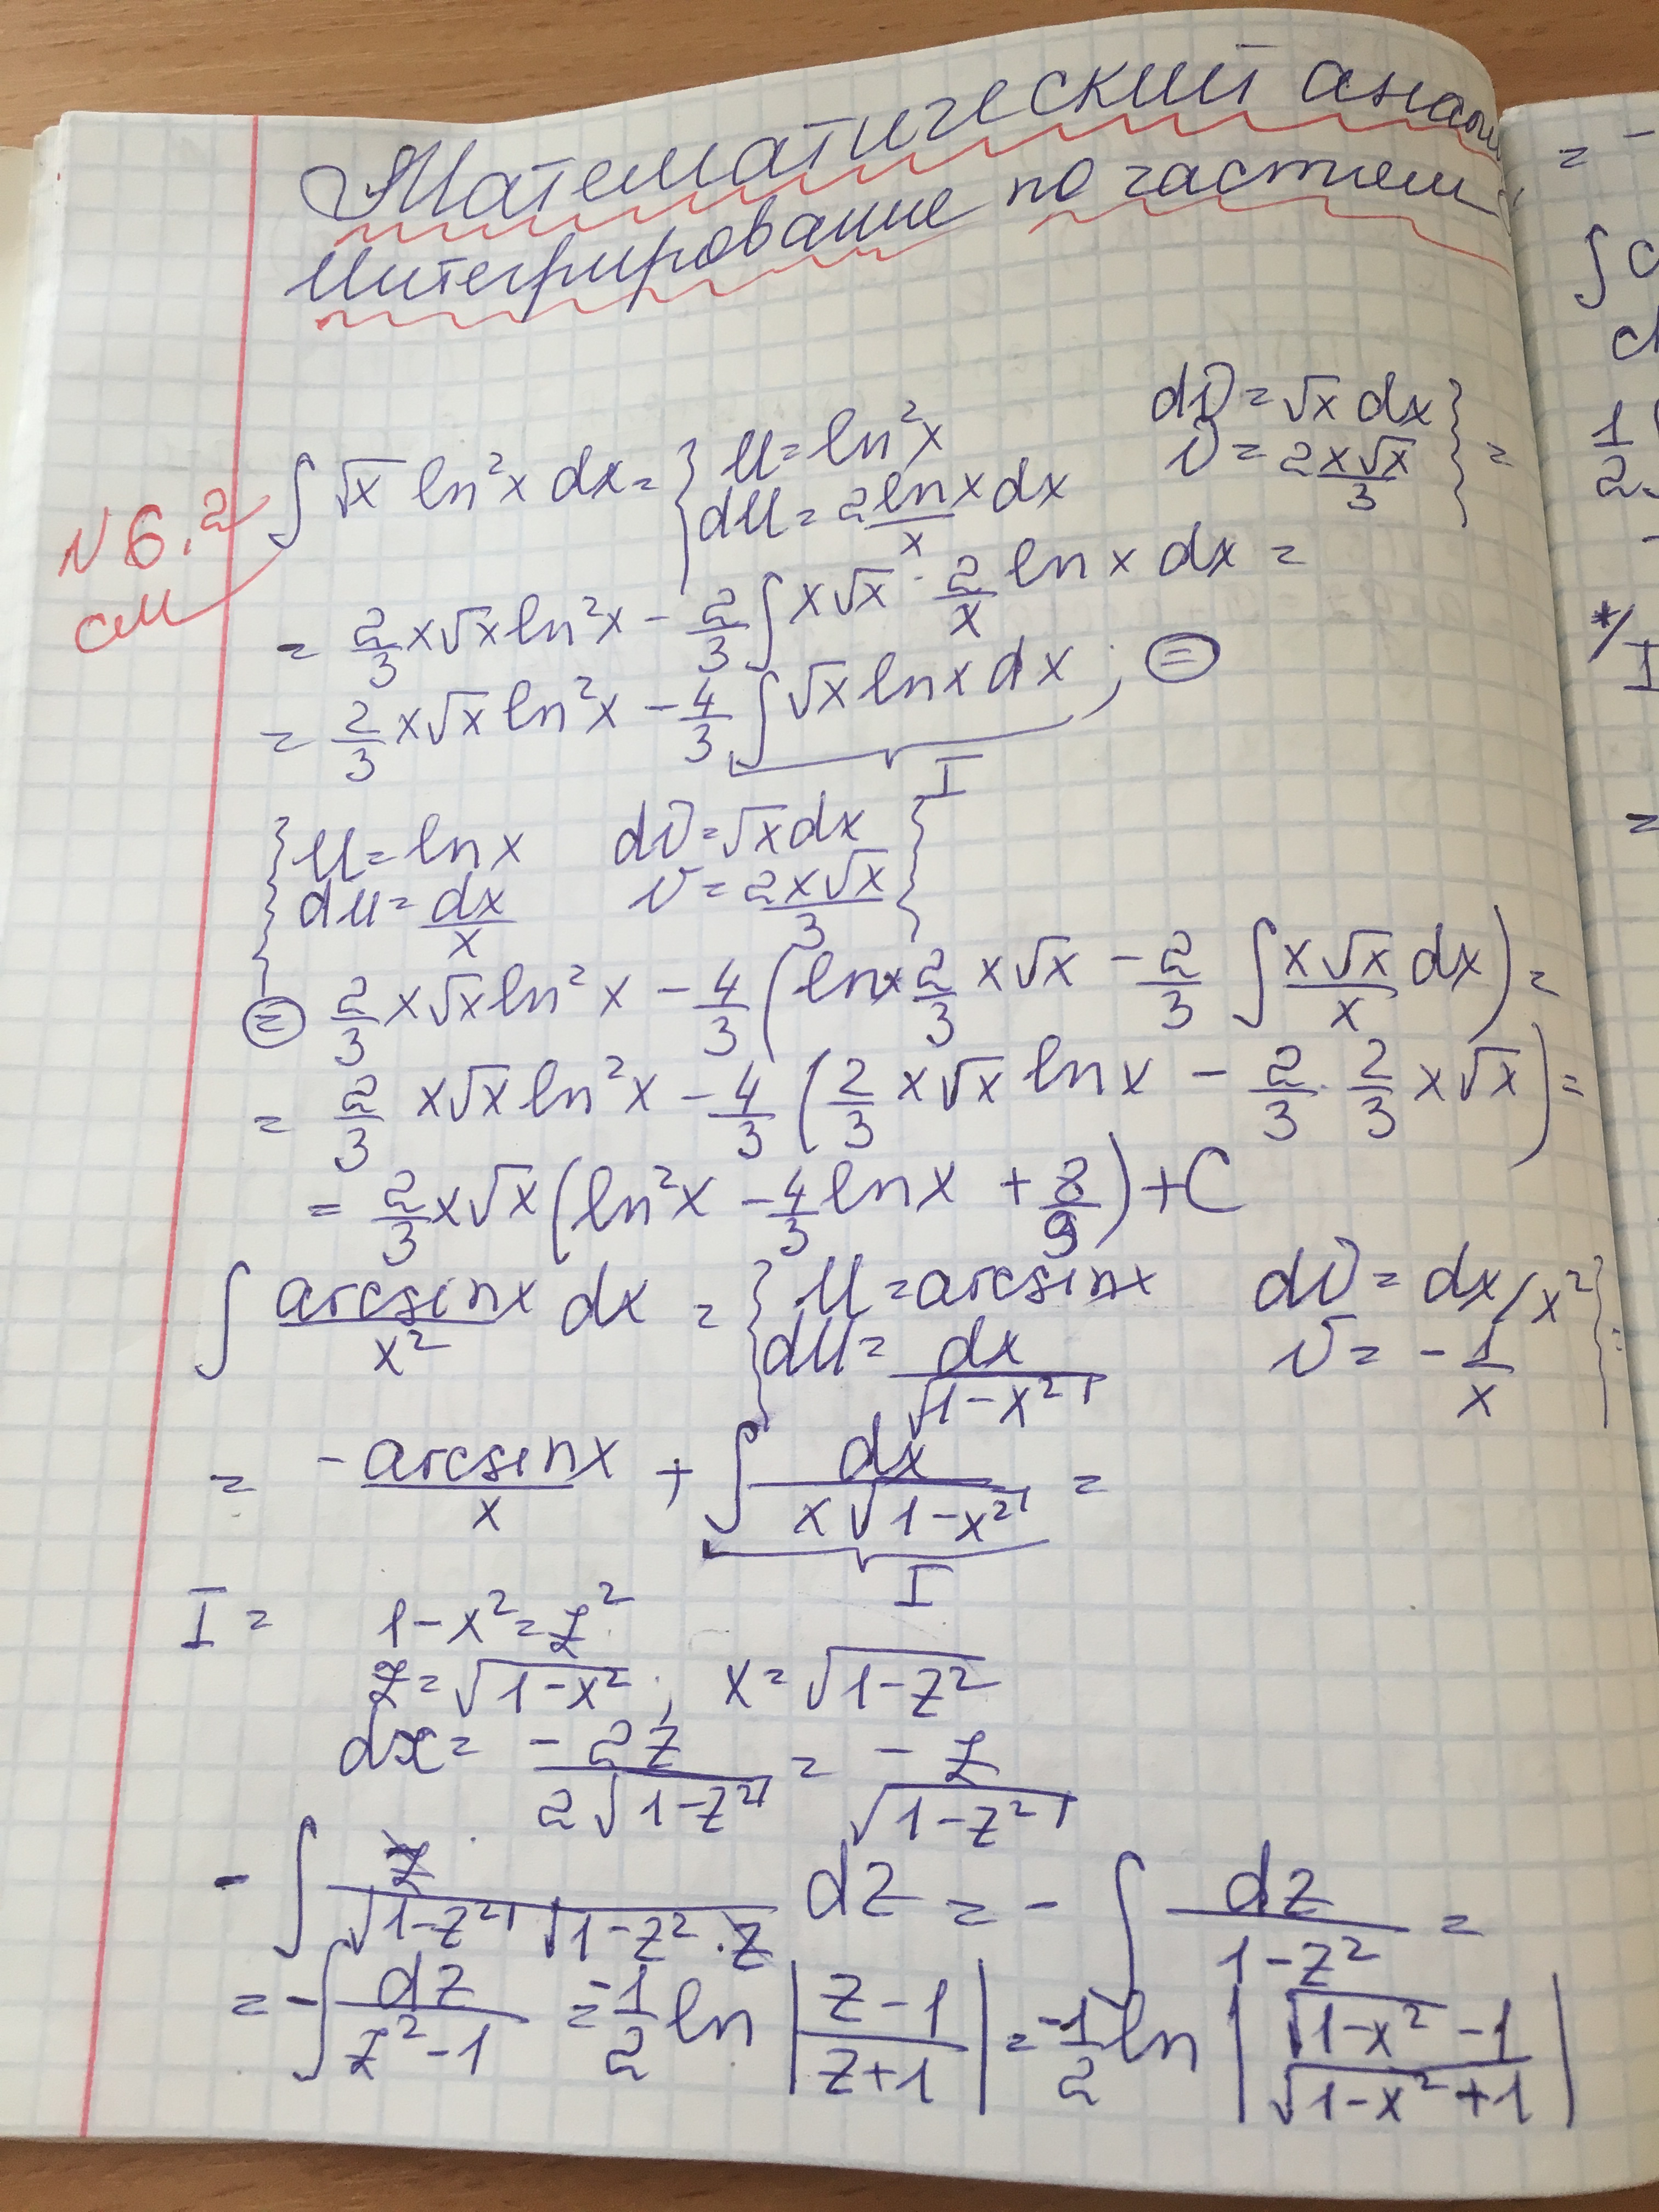 Математический анали
Интегрирование по частям
N 6.2
см
∫ √x ln²x dx = { u = ln²x dv = √x dx
du = 2 lnx/x dx v = 2x√x/3 } =
= 2/3 x√x ln²x - 2/3 ∫ x√x · 2/x ln x dx =
= 2/3 x√x ln²x - 4/3 ∫ √x ln x dx ; ⊜
I
{ u = ln x dv = √x dx
du = dx/x v = 2x√x/3 }
⊜ 2/3 x√x ln²x - 4/3 ( lnx 2/3 x√x - 2/3 ∫ x√x/x dx ) =
= 2/3 x√x ln²x - 4/3 ( 2/3 x√x ln x - 2/3 · 2/3 x√x ) =
= 2/3 x√x ( ln²x - 4/3 ln x + 8/9 ) + C
∫ arcsinx/x² dx = { u = arcsinx dv = dx/x²
du = dx/√(1-x²) v = - 1/x } =
= - arcsinx/x + ∫ dx/(x√(1-x²)) =
I
I = 1-x² = z²
z = √(1-x²) ; x = √(1-z²)
dx = -2z/(2√(1-z²)) = - z/√(1-z²)
- ∫ z/(√(1-z²) √(1-z²) · z) dz = - ∫ dz/(1-z²) =
= - ∫ dz/(z²-1) = -1/2 ln |(z-1)/(z+1)| = -1/2 ln |(√(1-x²) -1)/(√(1-x²) +1)|
= -
∫
1/2
*/
I
=